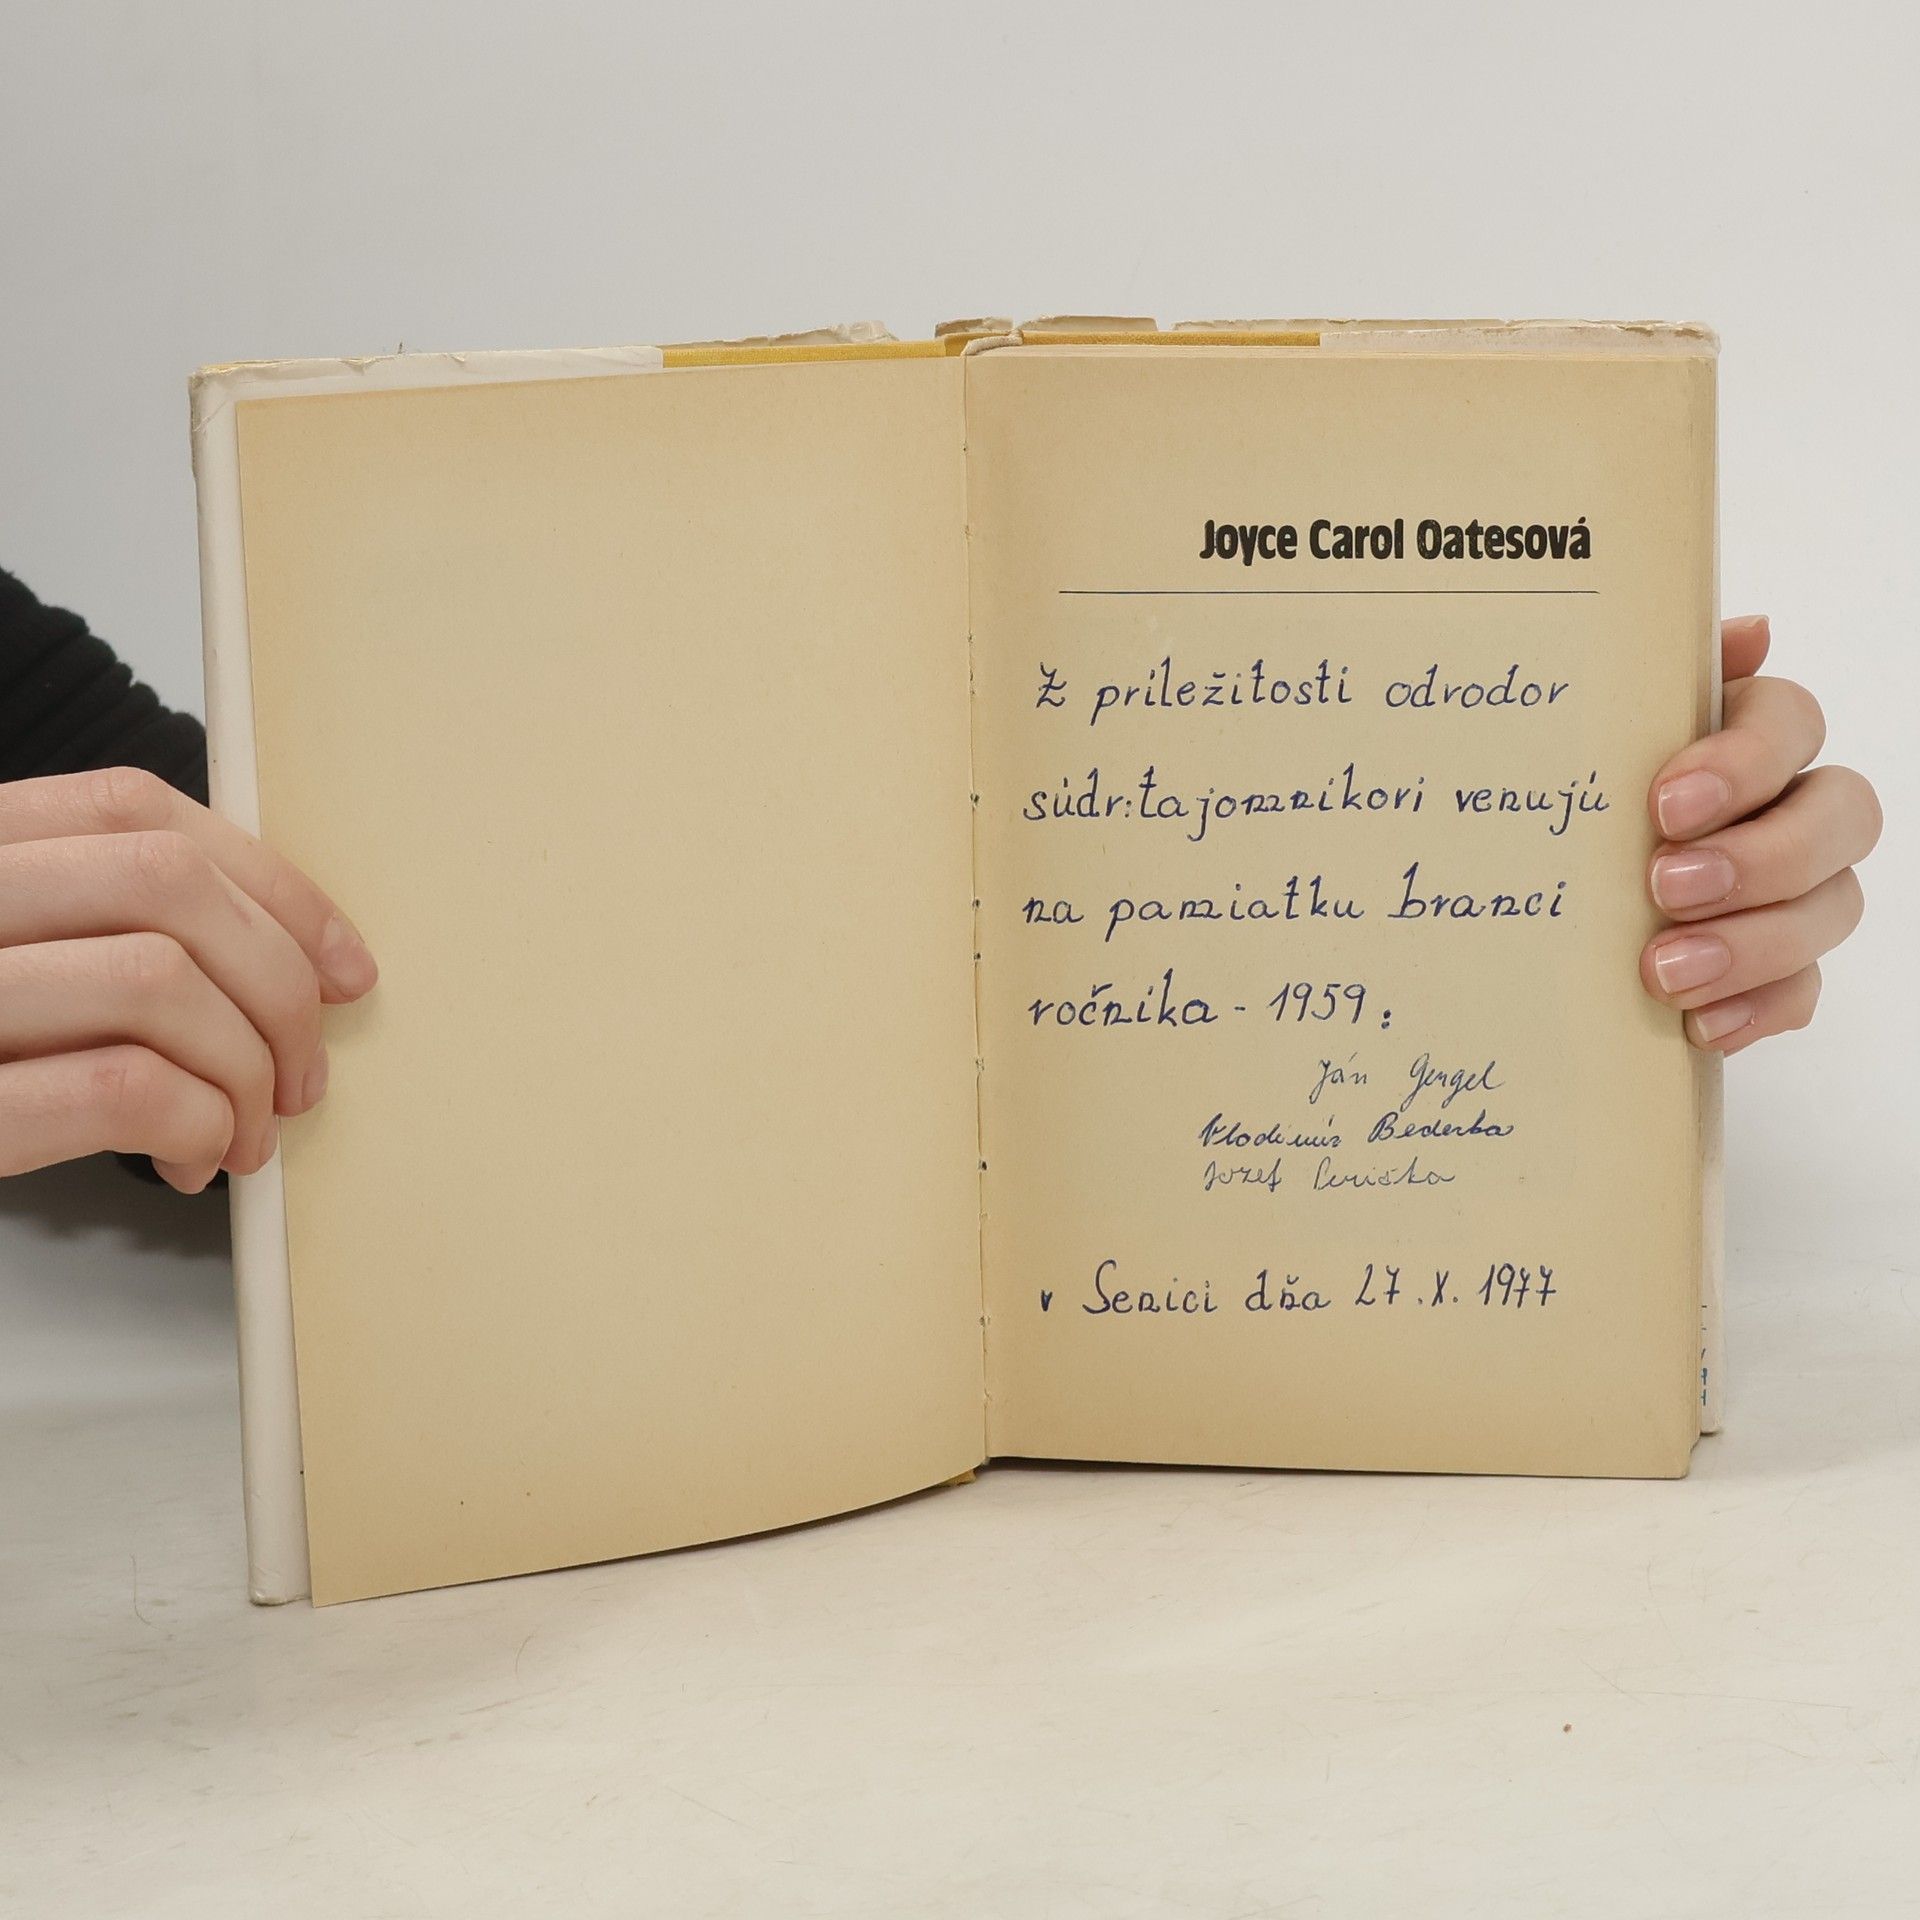 Joyce Carol Oatesová
Z príležitosti odvodov
súdr. tajomníkovi venujú
na pamiatku branci
ročníka - 1959:
Ján Gergel
Vladimír Bederka
Jozef
v Senici dňa 27. X. 1977